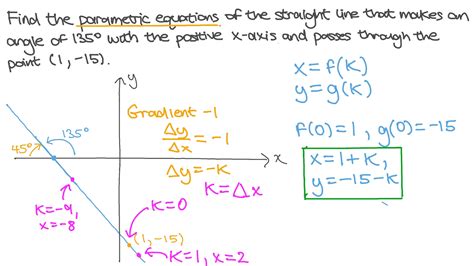 Find the parametric equations of the straight line that makes an
angle of 135° with the positive x-axis and passes through the
point (1, -15).
y
x = f(K)
y = g(K)
Gradient -1
Δy/Δx = -1
135°
45°
x
f(0) = 1 , g(0) = -15
Δy = -K
K = Δx
x = 1 + K,
y = -15 - K
K = -9,
x = -8
K = 0
(1, -15)
K = 1, x = 2